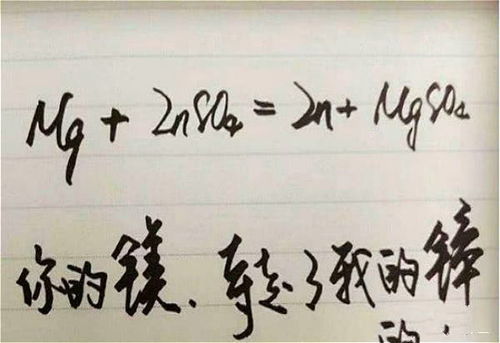 Mg + ZnSO₄ = Zn + MgSO₄
你的镁、夺走了我的锌
的